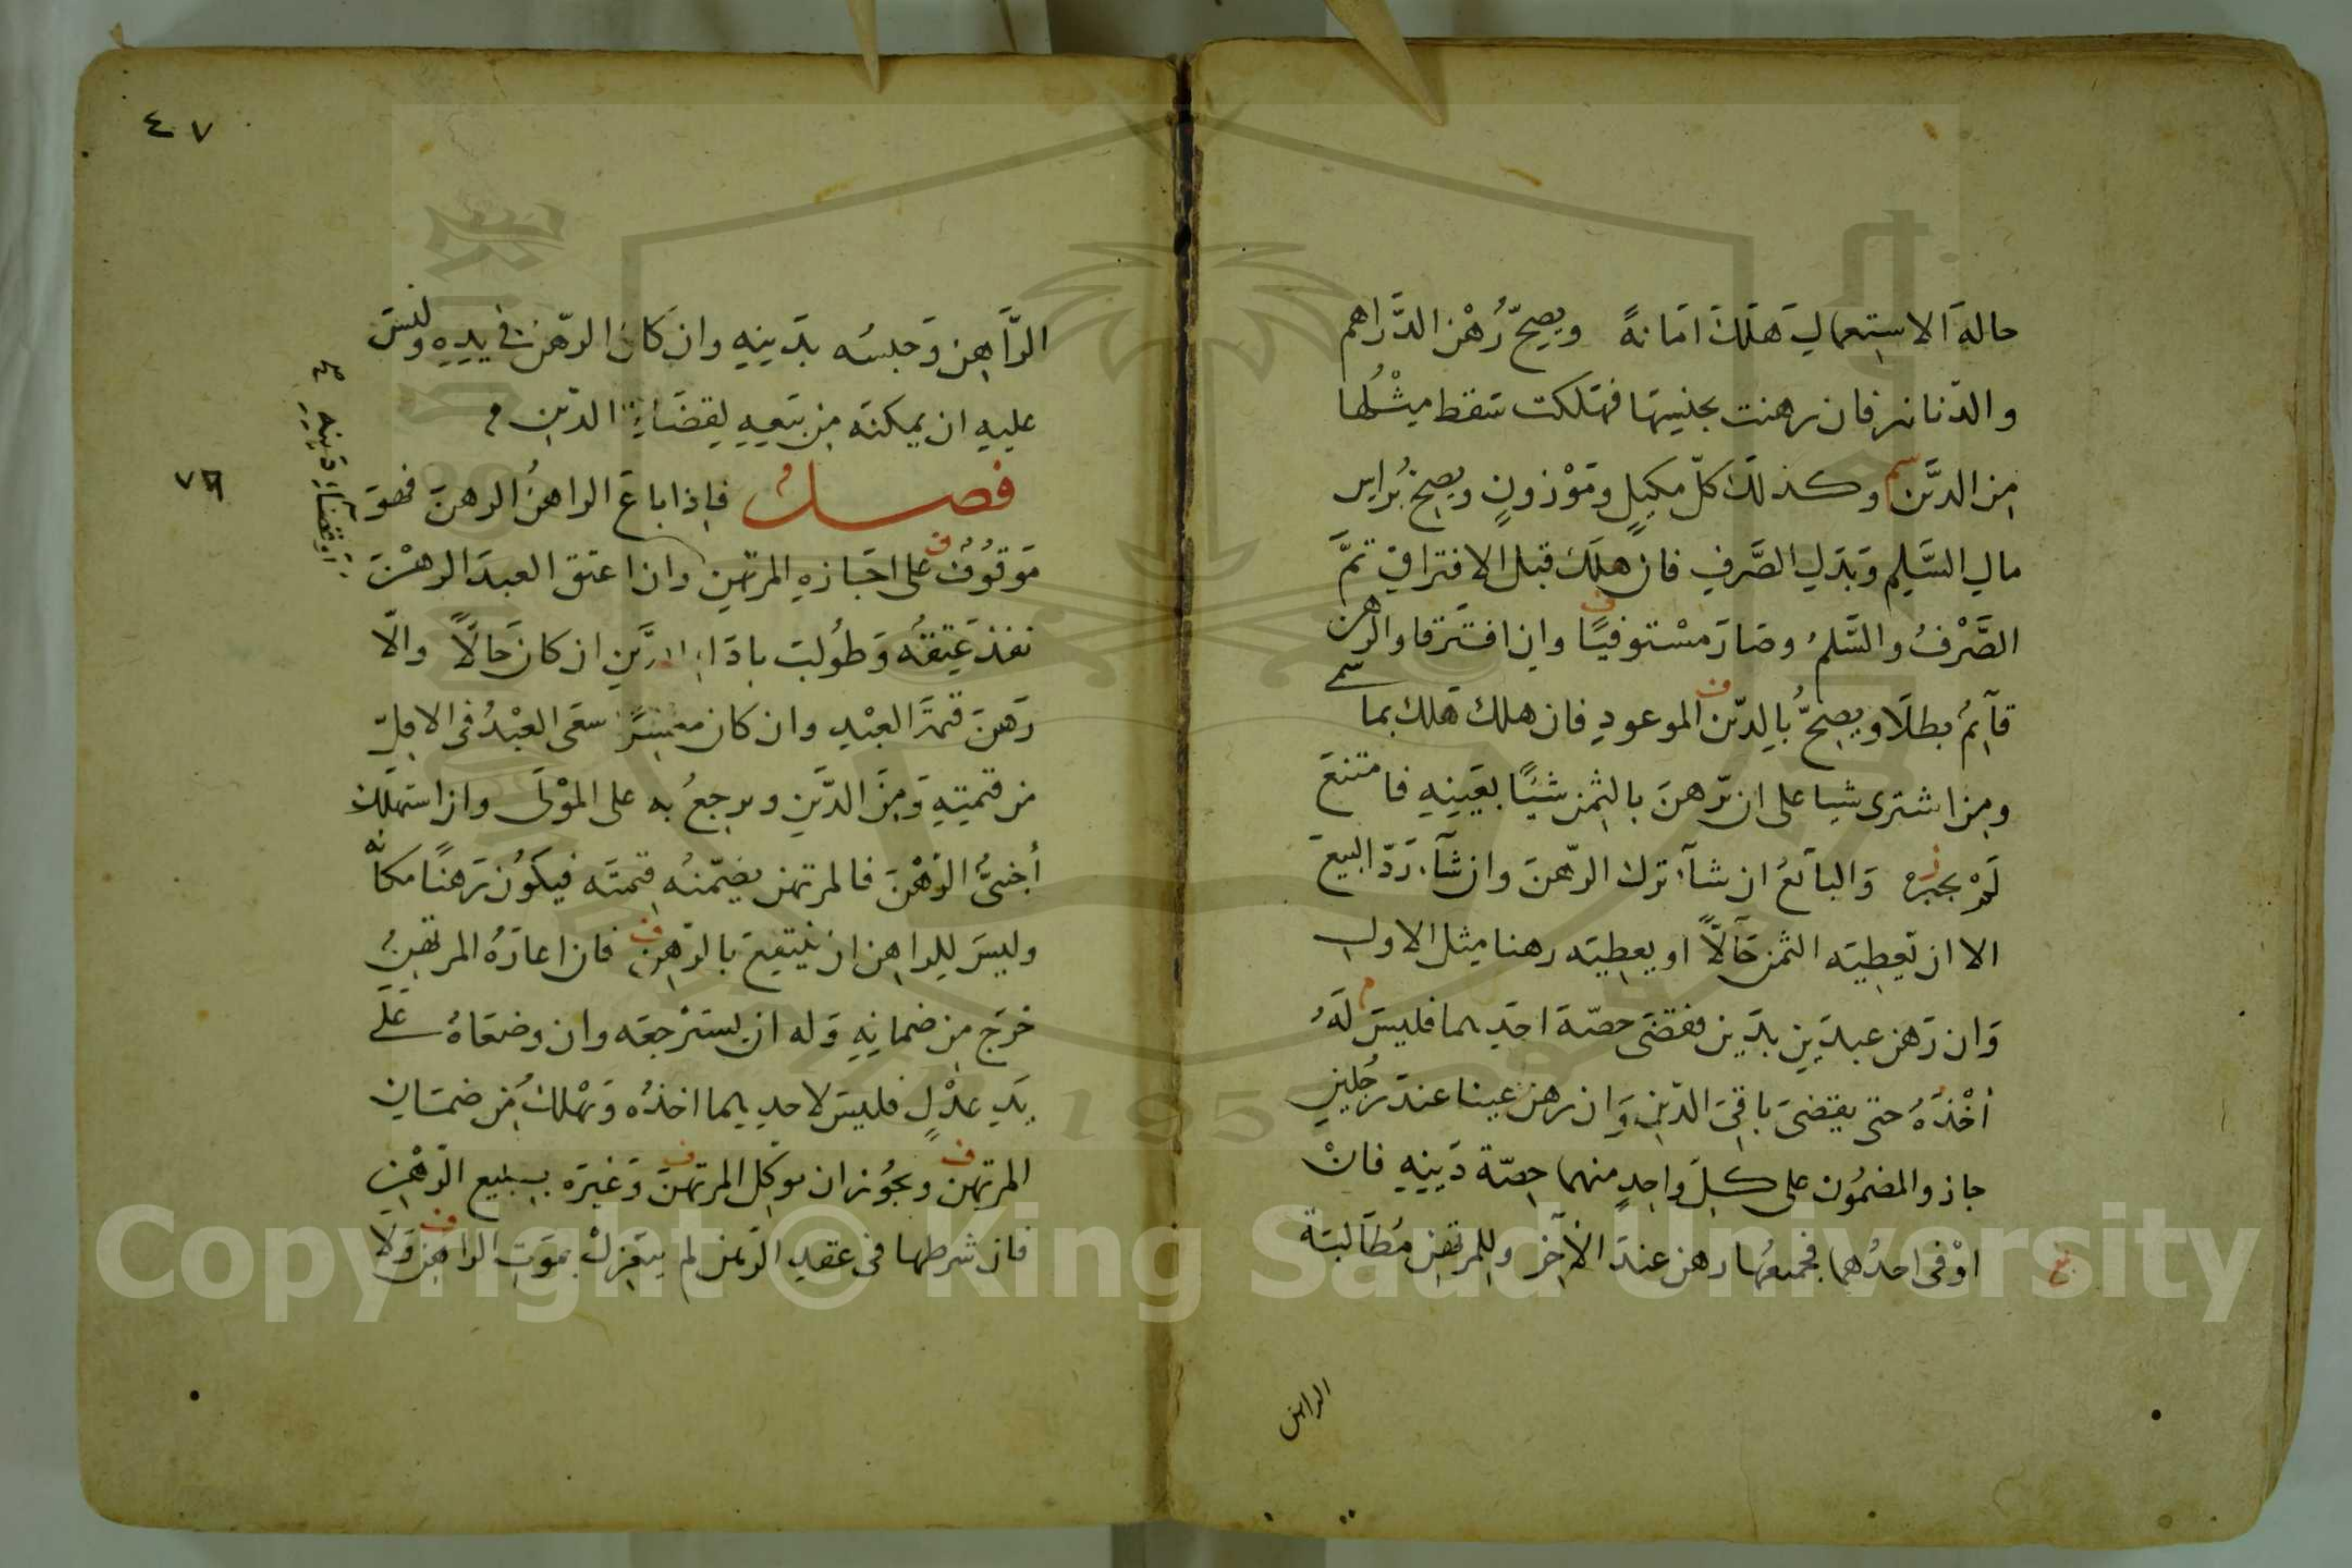 حالة الاستعمال هلك امانة ويصح رهن الدراهم
والدنانير فان رهنت بجنسها فهلكت سقط مثلها
من الدين وكذلك كل مكيل وموزون ويصح براس
مال السلم وبدل الصرف فان هلك قبل الافتراق تم
الصرف والسلم وصار مستوفيا وان افترقا والرهن
قآئم بطلا ويصح بالدين الموعود فان هلك هلك بما سمى
ومن اشترى شيا على ان يرهن بالثمن شيئا بعينه فامتنع
لم يجبر والبائع ان شآء ترك الرهن وان شآء رد البيع
الا ان يعطيه الثمن حالا او يعطيه رهنا مثل الاول
وان رهن عبدين بدين فقضى حصة احديهما فليس له
اخذه حتى يقضى باقى الدين وان رهن عينا عند رجلين
جاز والمضمون على كل واحد منهما حصة دينه فان
اوفى احدهما فجميعها رهن عند الآخر وللمرتهن مطالبة
الراهن
٤٧
الراهن وحبسه بدينه وان كان الرهن فى يده وليس
عليه ان يمكنه من بيعه لقضاء الدين م
٧٦
فصل فاذا باع الراهن الرهن فهو
موقوف على اجازة المرتهن وان اعتق العبد الرهن
نفذ عتقه وطولب باداء الدين ان كان حالا والا
رهن قيمة العبد وان كان معسرا سعى العبد فى الاقل
من قيمته ومن الدين ويرجع به على المولى وان استهلك
أجنبى الرهن فالمرتهن يضمنه قيمته فيكون رهنا مكانه
وليس للراهن ان ينتفع بالرهن فان اعاره المرتهن
خرج من ضمانه وله ان يسترجعه وان وضعاه على
يد عدل فليس لاحديهما اخذه ويهلك من ضمان
المرتهن ويجوز ان يوكل المرتهن وغيره ببيع الرهن
فان شرطها فى عقد الرهن لم ينعزل بموت الراهن ولا
Copyright © King Saud University
195